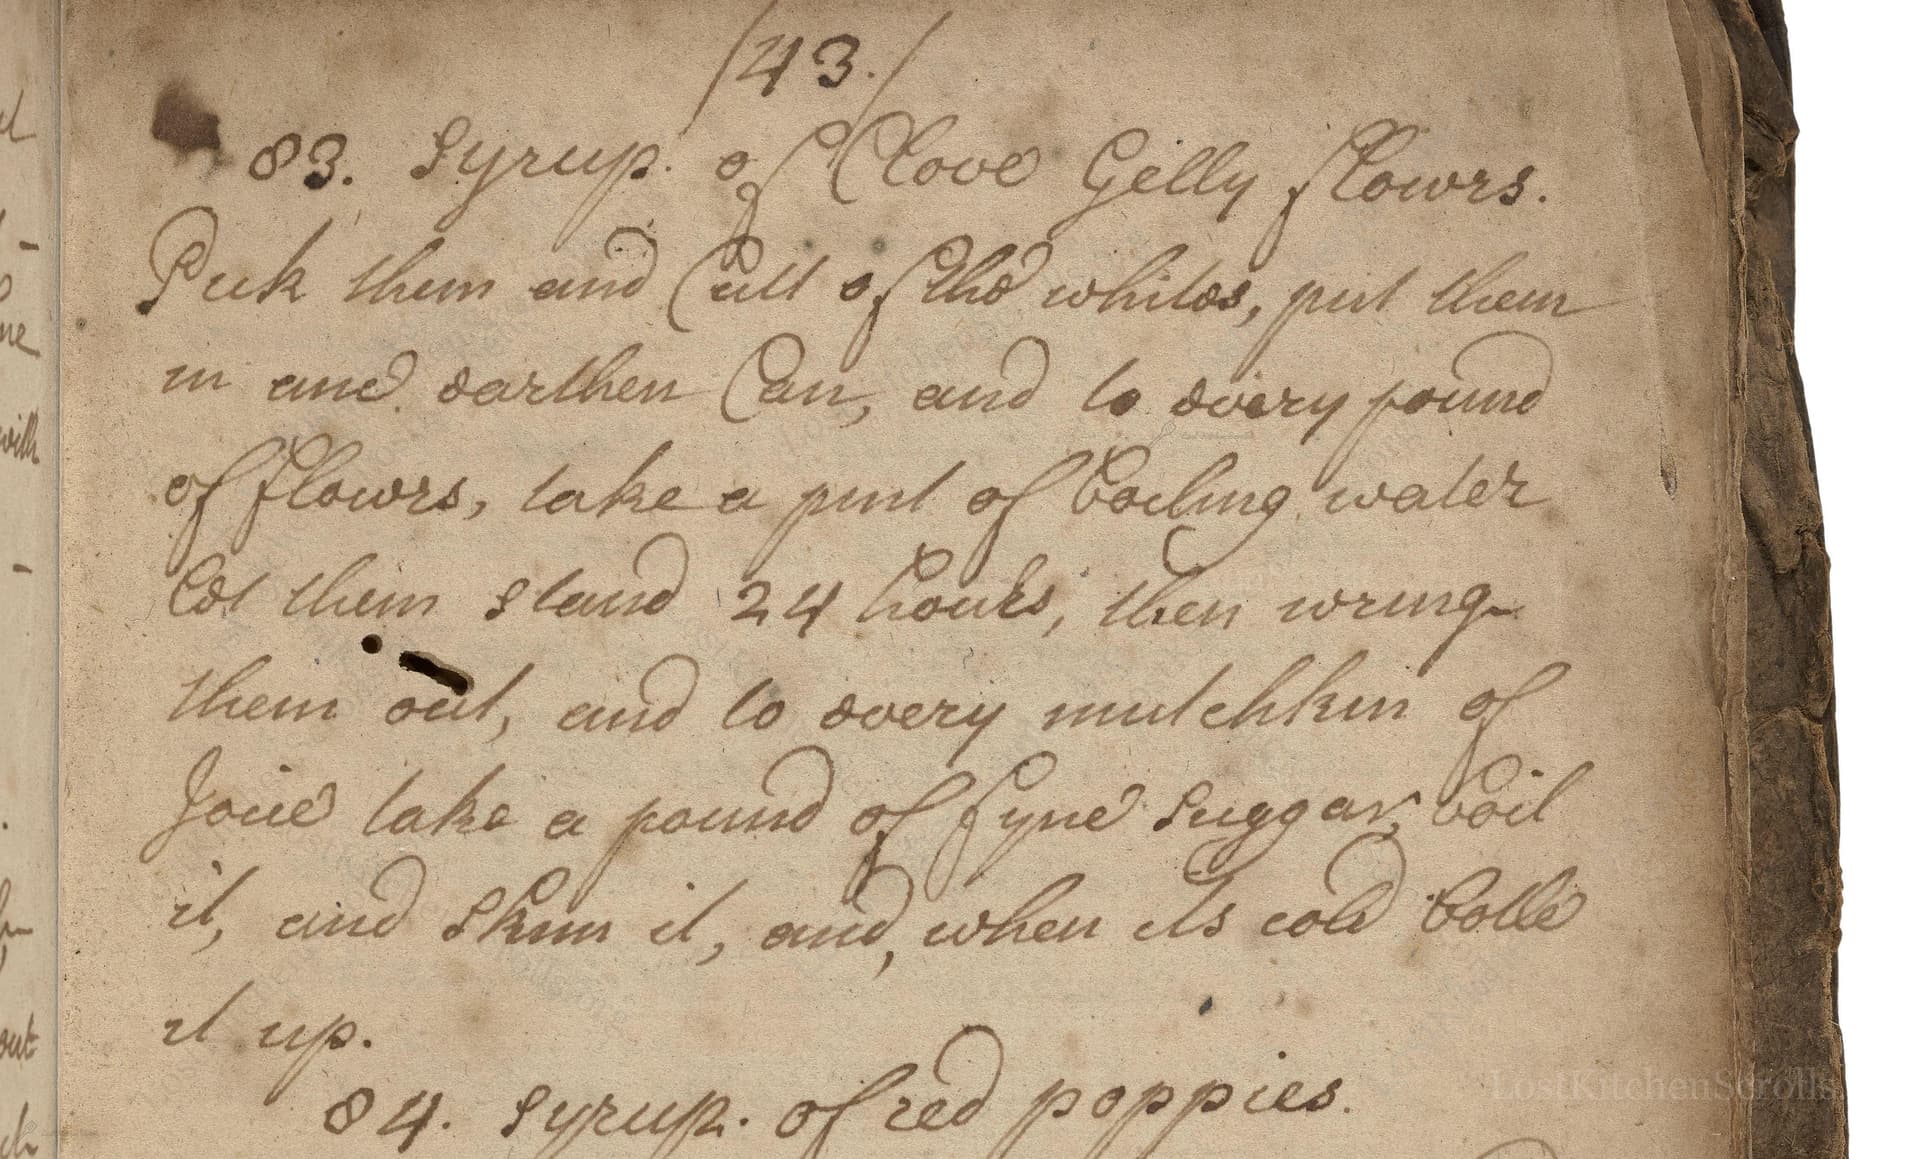 /43./
83. Syrup. of Clove Gelly flowrs.
Pick them and Cutt of the whites, put them
in ane earthen Can, and to every pound
of flowrs, take a pint of boiling water
let them stand 24 hours, then wring
them out, and to every mutchkin of
Joice take a pound of fyne suggar, boil
it, and skum it, and, when its cold botle
it up.
84. Syrup. of red poppies.
will
out
LostKitchenScrolls